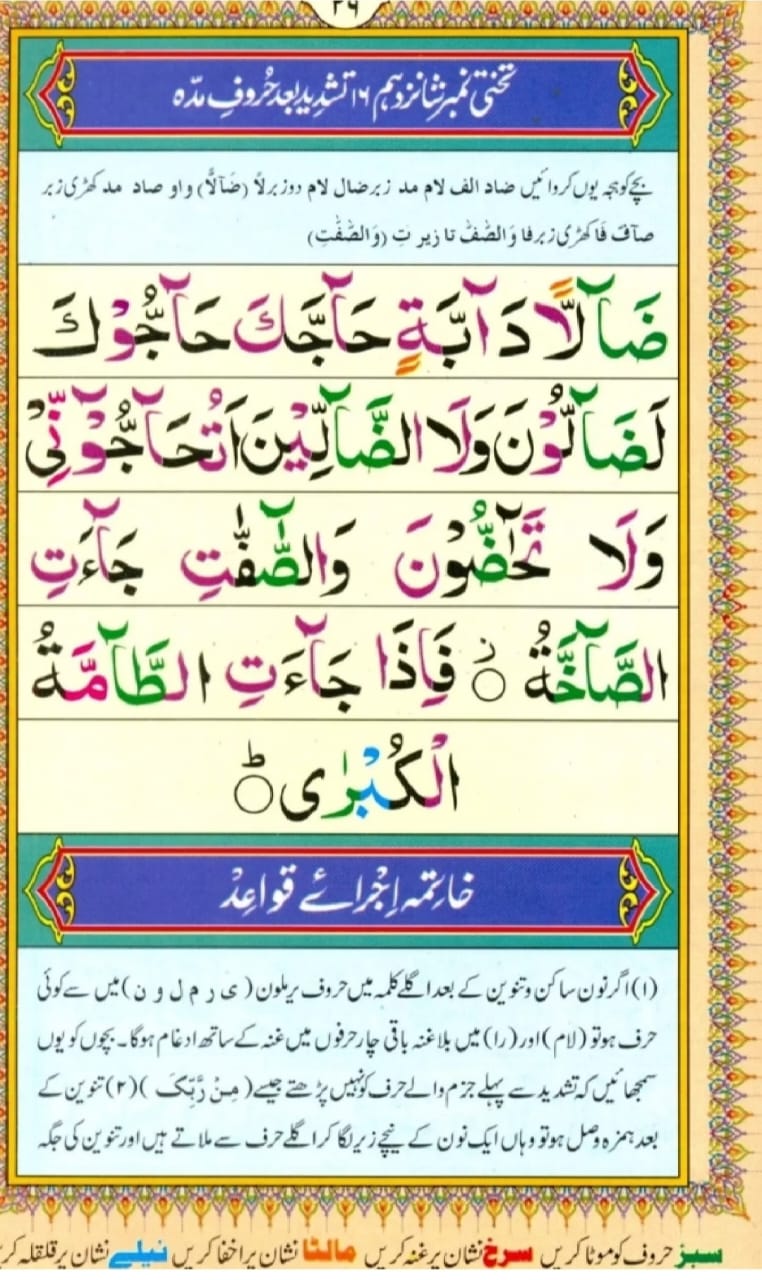 ۲۶
تختی نمبر شانزدہم ۱۶ تشدید بعد حُروفِ مدّہ
بچے کو ہجہ یوں کروائیں ضاد الف لام مد زبر ضال لام دو زبر لاً (ضَآلًّا) واو صاد مد کھڑی زبر
صآفّ فَا کھڑی زبر فا وَالصّٰفّٰ تا زیر تِ (وَالصّٰٓفّٰتِ)
ضَآلًّا دَآبَّةٍ حَآجَّكَ حَآجُّوْكَ
لَضَآلُّوْنَ وَلَا الضَّآلِّيْنَ اَتُحَآجُّوْٓنِّيْ
وَلَا تَحٰٓضُّوْنَ وَالصّٰٓفّٰتِ جَآءَتِ
الصَّآخَّةُ ۝ز فَاِذَا جَآءَتِ الطَّآمَّةُ
الْكُبْرٰى ۝ط
خاتِمہ اِجْرائے قواعِدْ
(۱) اگر نون ساکن و تنوین کے بعد اگلے کلمہ میں حروف یرملون (ی ر م ل و ن) میں سے کوئی
حرف ہو تو (لام) اور (را) میں بلا غنہ باقی چار حرفوں میں غنہ کے ساتھ ادغام ہوگا۔ بچوں کو یوں
سمجھائیں کہ تشدید سے پہلے جزم والے حرف کو نہیں پڑھتے جیسے (مِنْ رَّبِّكَ) (۲) تنوین کے
بعد ہمزہ وصل ہو تو وہاں ایک نون کے نیچے زیر لگا کر اگلے حرف سے ملاتے ہیں اور تنوین کی جگہ
سبز حروف کو موٹا کریں سرخ نشان پر غنہ کریں مالٹا نشان پر اخفا کریں نیلے نشان پر قلقلہ کریں